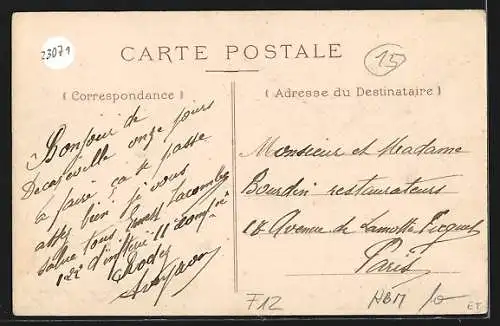 23071
CARTE POSTALE
15
( Correspondance )
( Adresse du Destinataire )
Bonjour de
Decazeville onze jours
a faire ça se passe
assez bien je vous
salue tous Ernest Lacombe
122e d'infterie 11e compie
Rodez
Aveyron
Monsieur et Madame
Bourdin restaurateurs
18 Avenue de Lamotte Piquet
Paris
F12